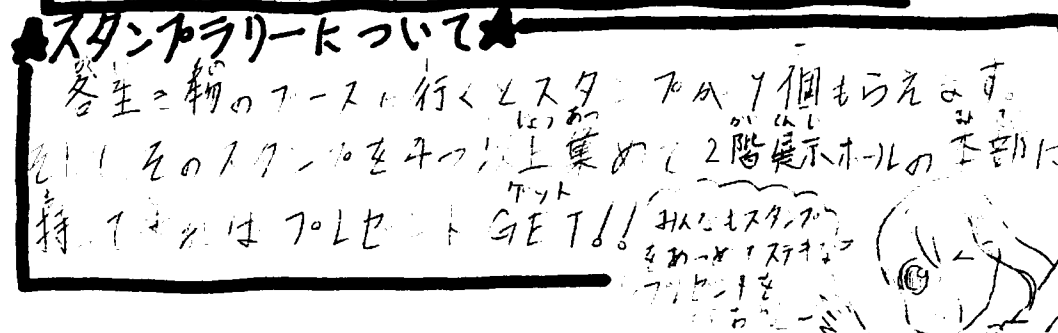 ★スタンプラリーについて★
各生き物のブースに行くとスタンプが1個もらえます。
そして そのスタンプを4つ以上集めて2階展示ホールの本部に
持ってくればプレゼントGET!!
みんなもスタンプ
をあつめてステキな
プレゼントを